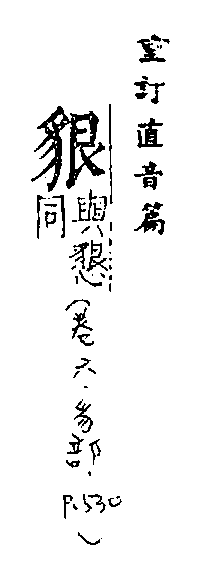 重訂直音篇
貇與懇同(卷六.豸部.P.530)